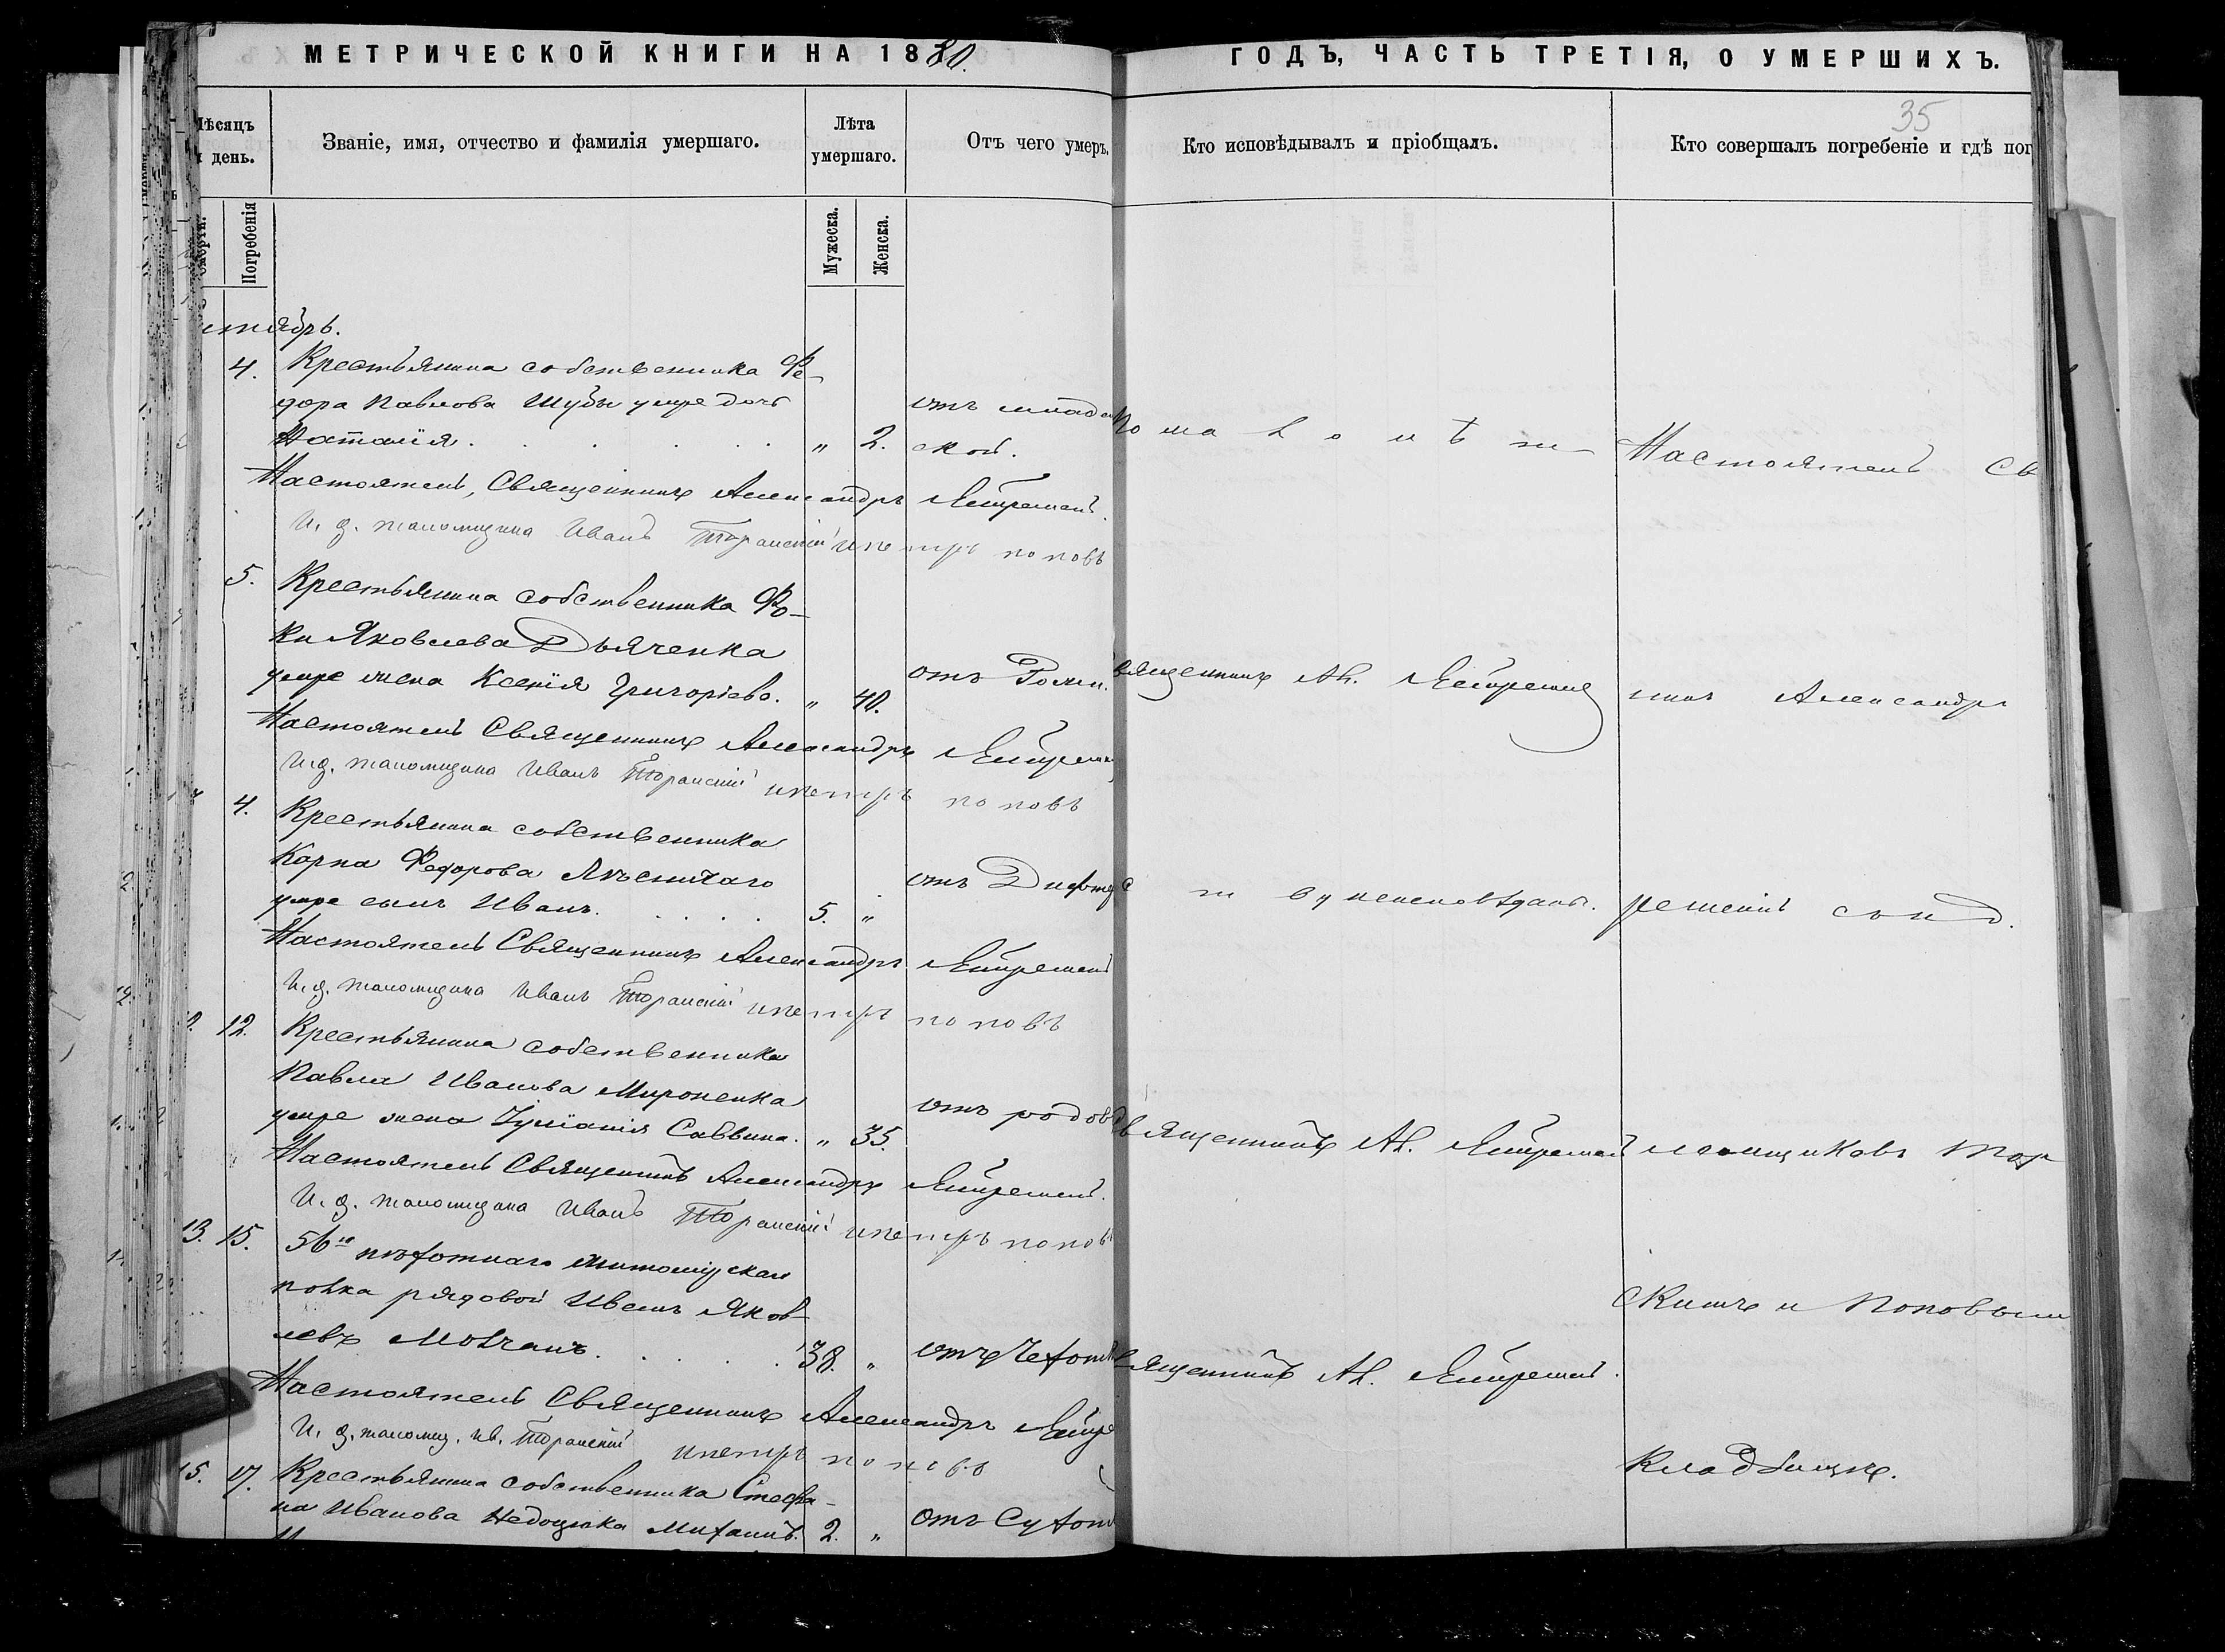 МЕТРИЧЕСКОЙ КНИГИ НА 1880.
ГОДЪ, ЧАСТЬ ТРЕТІЯ, О УМЕРШИХЪ.
35
Мѣсяцъ
и день.
Званіе, имя, отчество и фамилія умершаго.
Лѣта
умершаго.
Отъ чего умеръ.
Кто исповѣдывалъ и пріобщалъ.
Кто совершалъ погребеніе и гдѣ пог
Погребенія
Мужеска.
Женска.
4. Крестьянина собственника Ѳе-
дора Павлова Шубы умре дочь
Наталія. „ 2. отъ младен
ской. По малолѣт Настоятель Св
Настоятель, Священникъ Александръ
И. д. псаломщика Иванъ Торанскій и Петръ Поповъ
5. Крестьянина собственника Фо-
ки Яковлева Дьяченка
умре жена Ксенія Григорьева. „ 40. отъ священникъ Ал. никъ Александръ
Настоятель Священникъ Александръ
И. д. псаломщика Иванъ Торанскій и Петръ Поповъ
4. Крестьянина собственника
Карпа Федорова
умре сынъ Иванъ. 5. „ отъ Дифт
Настоятель Священникъ Александръ
И. д. псаломщика Иванъ Торанскій и Петръ Поповъ
12. Крестьянина собственника
Павла Иванова Мироненка
умре жена Іуліанія Саввина. „ 35. отъ родовъ священникъ Ал. ломщиковъ Тор
Настоятель Священникъ Александръ
И. д. псаломщика Иванъ Торанскій и Петръ Поповъ
13. 15. 56го пѣхотнаго Житомірскаго
полка рядовой Иванъ Яков-
левъ Мовчанъ. 38. „ отъ чахот священникъ Ал.
скимъ и Поповым
Настоятель Священникъ Александръ
И. д. псаломщ. Ив. Торанскій и Петръ Поповъ
кладбищѣ.
15. 17. Крестьянина собственника Стефа-
на Иванова Недоцюка Михаилъ. 2. „ отъ сухот